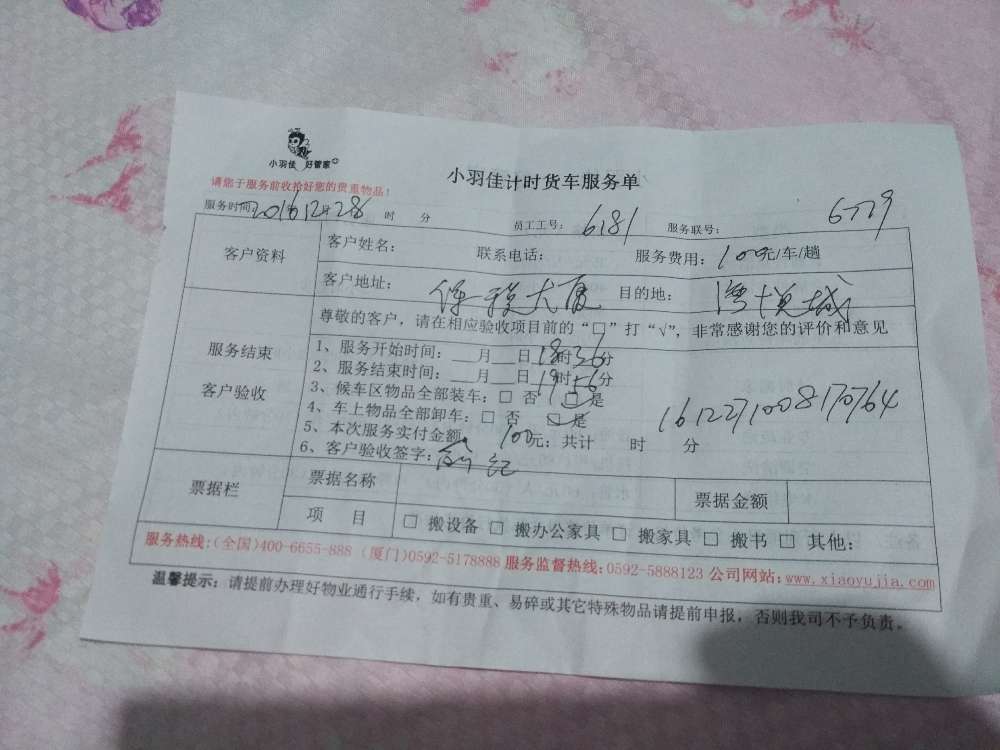 小羽佳 好管家
小羽佳计时货车服务单
请您于服务前收拾好您的贵重物品！
服务时间：2016 12月28 时 分 员工工号：6181 服务联号：
客户资料 客户姓名： 联系电话： 服务费用：100元/车/趟
客户地址： 大厦 目的地： 城
尊敬的客户，请在相应验收项目前的“□”打“√”，非常感谢您的评价和意见
服务结束
客户验收
1、服务开始时间：___月___日18时36分
2、服务结束时间：___月___日19时56分
3、候车区物品全部装车：□ 否 □ 是
4、车上物品全部卸车：□ 否 □ 是
1612271008170764
5、本次服务实付金额 100元；共计 时 分
6、客户验收签字：
票据栏 票据名称 票据金额
项 目 □ 搬设备 □ 搬办公家具 □ 搬家具 □ 搬书 □ 其他：
服务热线：(全国)400-6655-888 (厦门)0592-5178888 服务监督热线：0592-5888123 公司网站：www.xiaoyujia.com
温馨提示：请提前办理好物业通行手续，如有贵重、易碎或其它特殊物品请提前申报，否则我司不予负责。